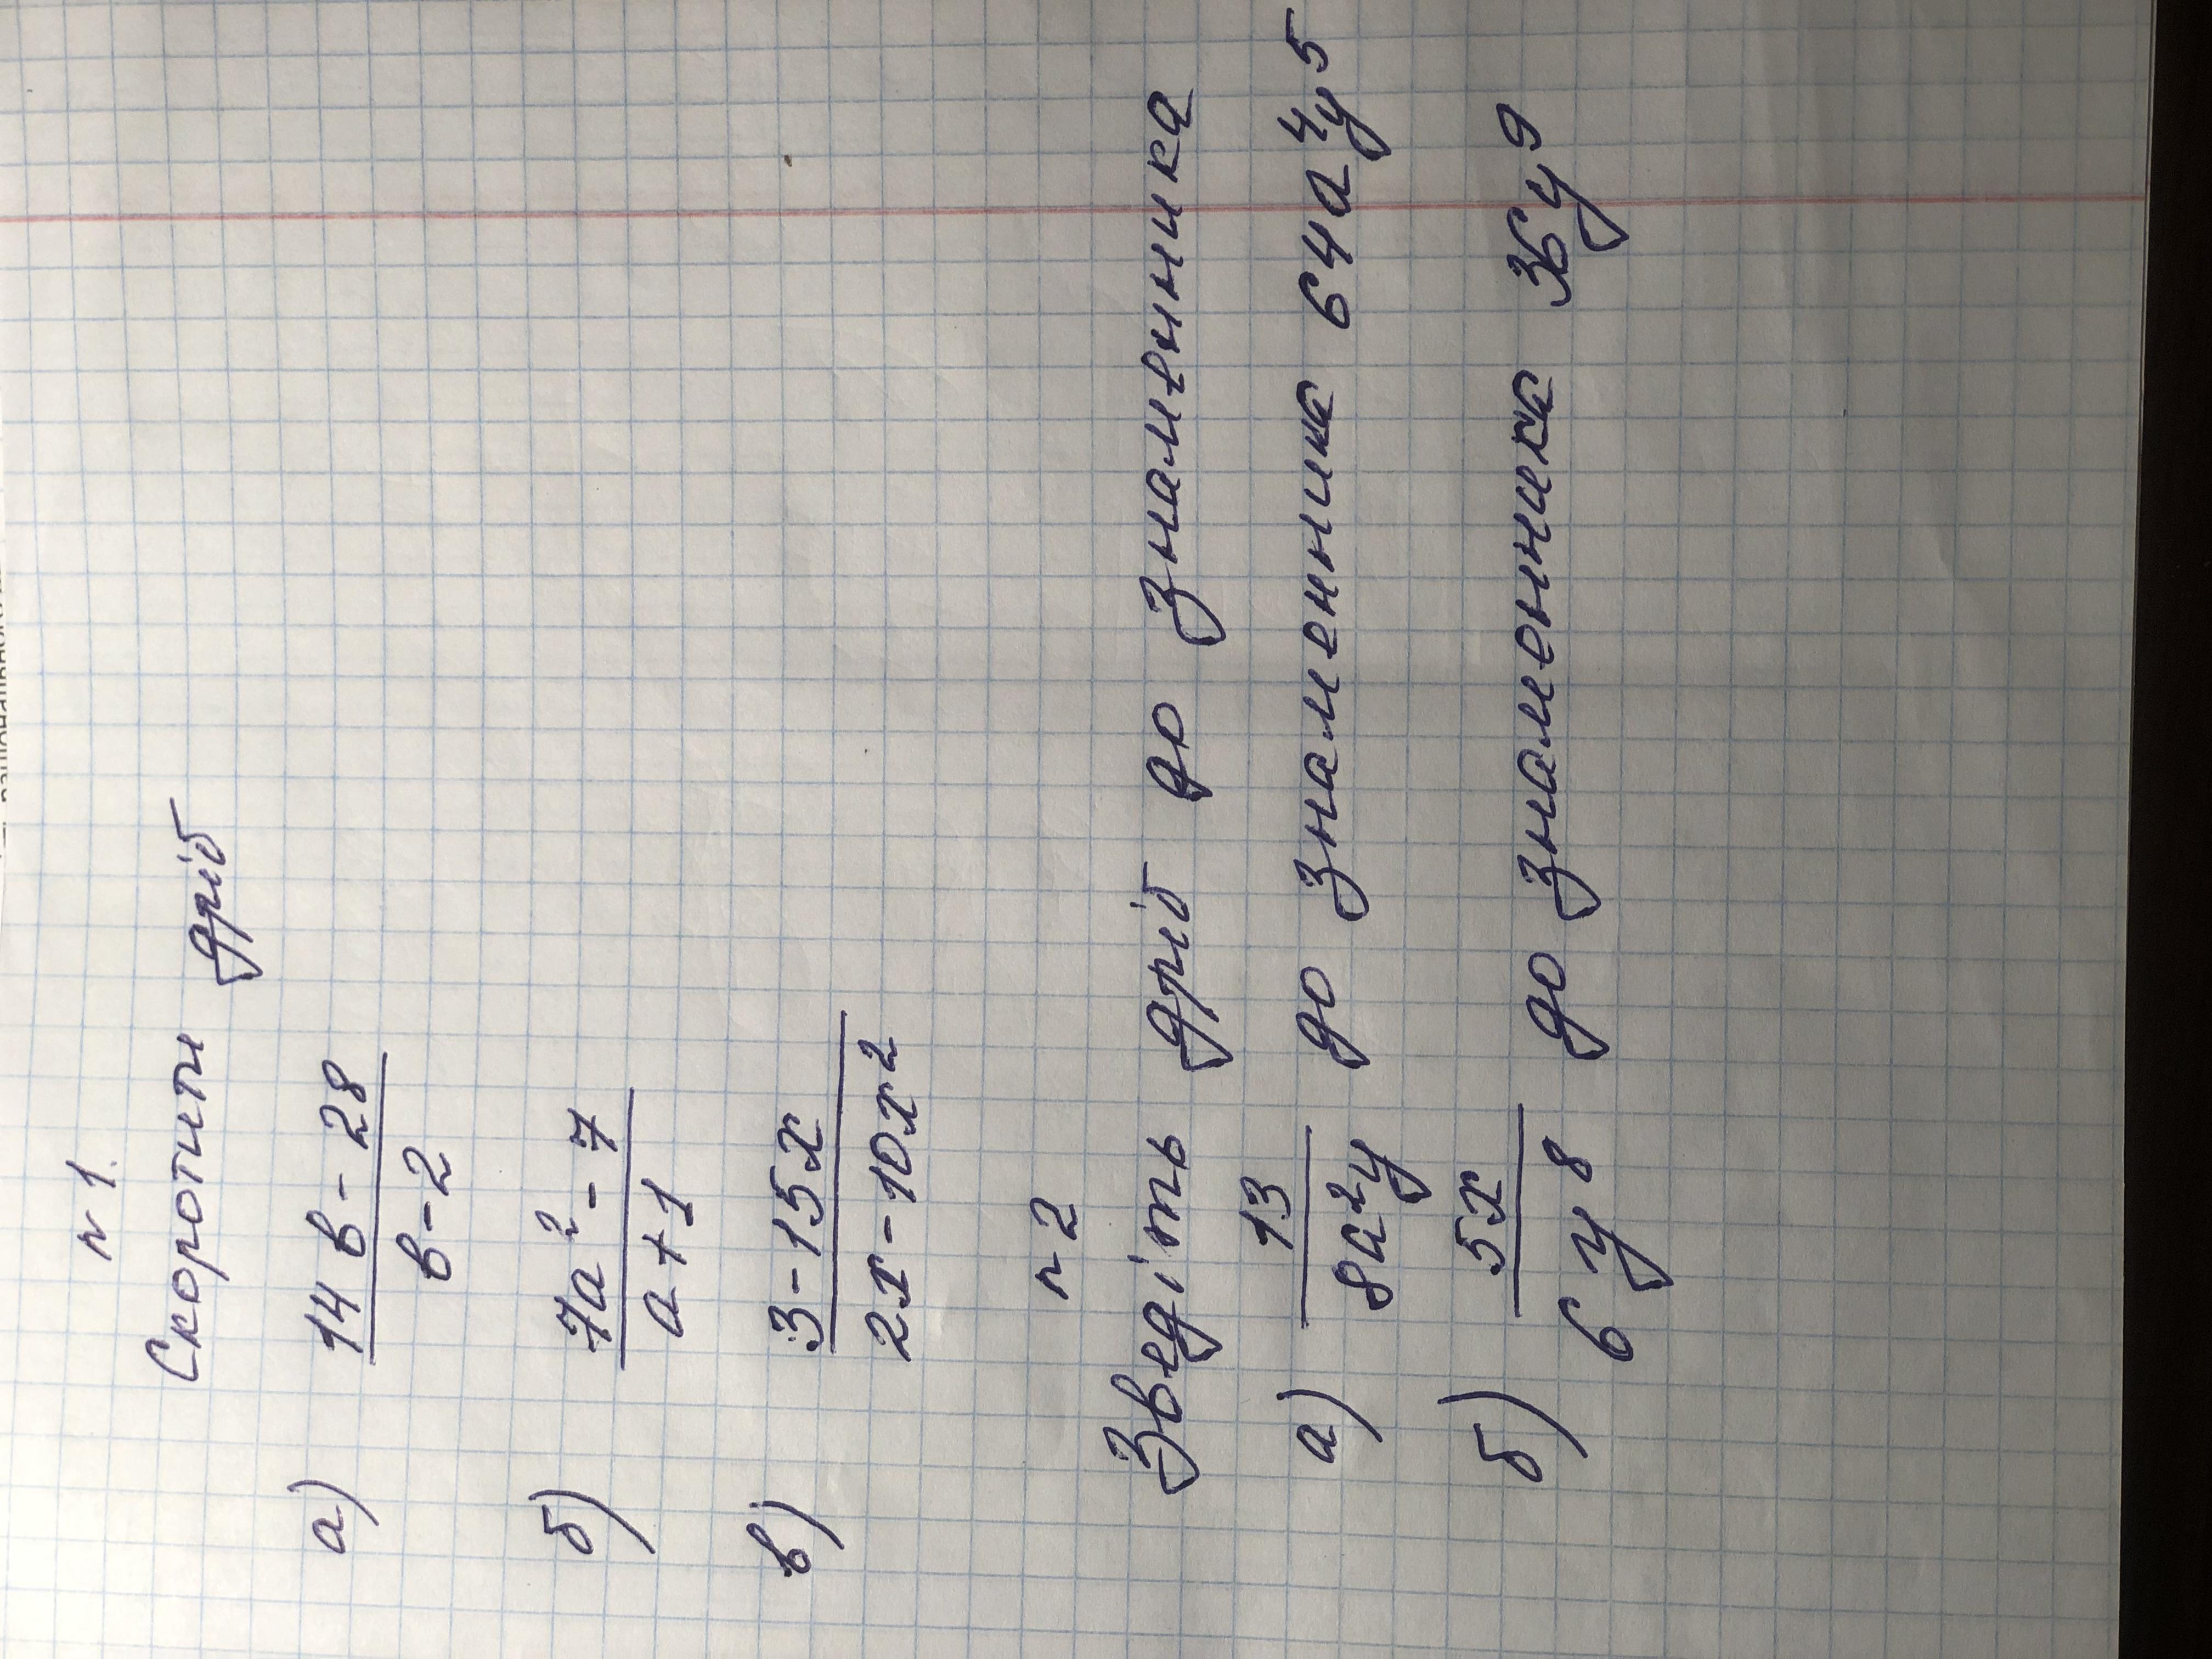 n 1.
Скоротити дріб
а) 14в-28 / в-2
б) 7a²-7 / a+1
в) 3-15x / 2x-10x²
n 2
Зведіть дріб до знаменника
а) 13 / 8a²y до знаменника 64a⁴y⁵
б) 5x / 6y⁸ до знаменника 36y⁹